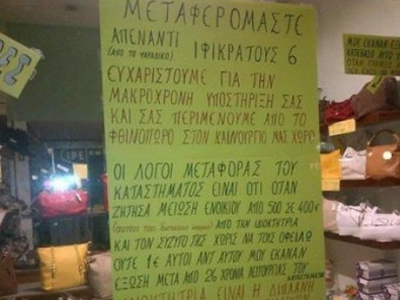 ΜΕΤΑΦΕΡΟΜΑΣΤΕ
ΑΠΕΝΑΝΤΙ ΙΦΙΚΡΑΤΟΥΣ 6
(ΑΠΟ ΤΟ ΨΑΡΑΔΙΚΟ)
ΕΥΧΑΡΙΣΤΟΥΜΕ ΓΙΑ ΤΗΝ
ΜΑΚΡΟΧΡΟΝΗ ΥΠΟΣΤΗΡΙΞΗ ΣΑΣ
ΚΑΙ ΣΑΣ ΠΕΡΙΜΕΝΟΥΜΕ ΑΠΟ ΤΟ
ΦΘΙΝΟΠΩΡΟ ΣΤΟΝ ΚΑΙΝΟΥΡΓΙΟ ΜΑΣ ΧΩΡΟ
ΟΙ ΛΟΓΟΙ ΜΕΤΑΦΟΡΑΣ ΤΟΥ
ΚΑΤΑΣΤΗΜΑΤΟΣ ΕΙΝΑΙ ΟΤΙ ΟΤΑΝ
ΖΗΤΗΣΑ ΜΕΙΩΣΗ ΕΝΟΙΚΙΟΥ ΑΠΟ 500 ΣΕ 400€
ΑΠΟ ΤΗΝ ΙΔΙΟΚΤΗΤΡΙΑ
ΚΑΙ ΤΟΝ ΣΥΖΥΓΟ ΤΗΣ ΧΩΡΙΣ ΝΑ ΤΟΥΣ ΟΦΕΙΛΩ
ΟΥΤΕ 1€ ΑΥΤΟΙ ΑΝΤ ΑΥΤΟΥ ΜΟΥ ΕΚΑΝΑΝ
ΕΞΩΣΗ ΜΕΤΑ ΑΠΟ 26 ΧΡΟΝΙΑ ΛΕΙΤΟΥΡΓΙΑΣ ΤΟΥ ΚΑΤΑΣΤΗΜΑΤΟΣ
ΕΙΝΑΙ Η
ΜΟΥ ΕΚΑΝΑΝ
ΚΑΤΕΒΑΣΩ ΑΥΤΟ